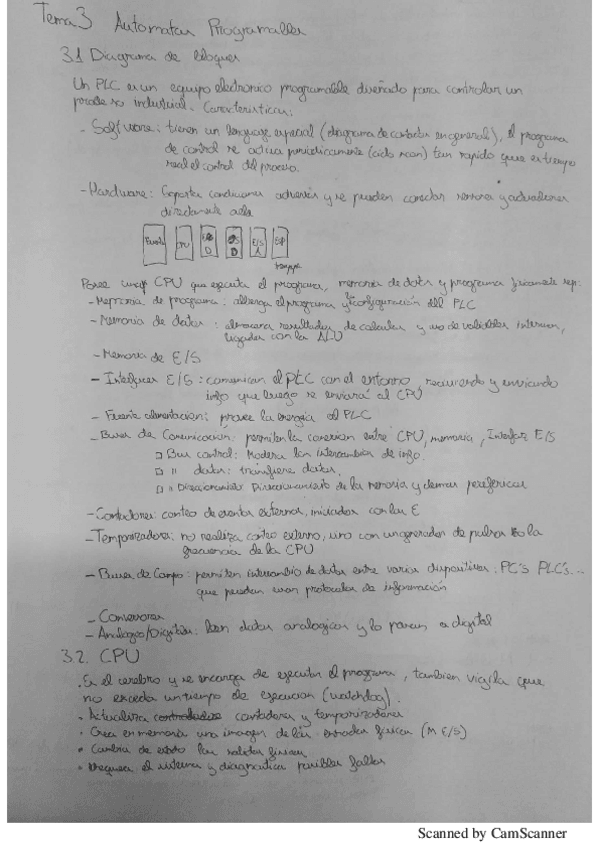 Tema 3 Automatas Programables
3.1 Diagrama de bloques
Un PLC es un equipo electronico programable diseñado para controlar un
proceso industrial. Caracteristicas:
- Software: tienen un lenguaje especial (diagrama de contactos en general), el programa
de control se actua periodicamente (ciclo scan) tan rapido que es tiempo
real el control del proceso.
- Hardware: Soporta condiciones adversas y se pueden conectar sensores y actuadores
directamente
CPU E/S D E/S A Esp
Posee una CPU que ejecuta el programa, memoria de datos y programa fisicamente sep:
- Memoria de programa: alberga el programa y configuración del PLC
- Memoria de datos: almacena resultados de calculos y uso de variables internas,
ligadas con la ALU
- Memoria de E/S
- Interfaces E/S: comunican el PLC con el entorno, recibiendo y enviando
info que luego se enviará al CPU
- Fuente alimentacion: provee la energia al PLC
- Buses de Comunicación: permiten la conexion entre CPU, memoria, Interfaz E/S
□ Bus control: Modera los intercambios de info.
□ " datos: transfiere datos,
□ " Direccionamiento: Direccionamiento de la memoria y demas perifericos
- Contadores: conteo de eventos externos, iniciados con las E
- Temporizadores: no realiza conteo externo, sino con un generador de pulsos la
frecuencia de la CPU
- Buses de Campo: permiten intercambio de datos entre varios dispositivos. PC's PLC's...
que pueden usar protocolos de información
- Conversores
- Analogos/Digitales: leen datos analogicos y lo pasan a digital
3.2. CPU
. Es el cerebro y se encarga de ejecutar el programa, tambien vigila que
no exceda un tiempo de ejecucion (watchdog).
• Actualiza contadores y temporizadores
• Crea en memoria una imagen de las entradas fisicas (M E/S)
• Cambia de estado las salidas fisicas
• Chequea el sistema y diagnostica posibles fallos
Scanned by CamScanner